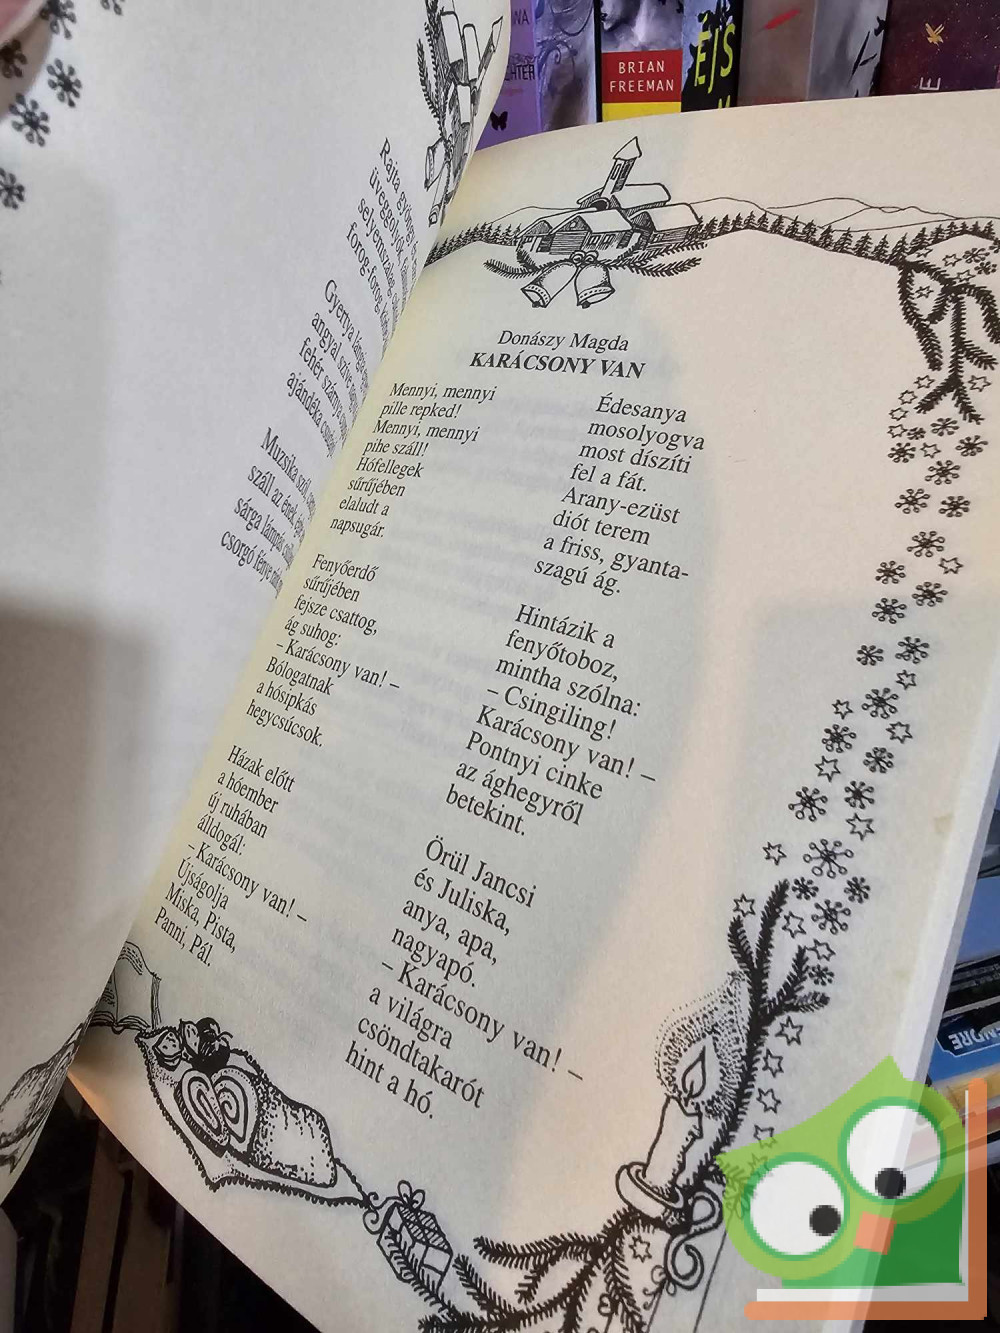 BRIAN
FREEMAN
ÉJS
Rajta gyöngy
üveggolyók
selyemszalag
forog-forog
Gyertya lángja
angyal szíve
fehér szánja
ajándéka
Muzsika szól
száll az ének
sárga lámpás
csorgó fénye
Donászy Magda
KARÁCSONY VAN
Mennyi, mennyi
pille repked!
Mennyi, mennyi
pihe száll!
Hófellegek
sűrűjében
elaludt a
napsugár.
Fenyőerdő
sűrűjében
fejsze csattog,
ág suhog:
– Karácsony van! –
Bólogatnak
a hósipkás
hegycsúcsok.
Házak előtt
a hóember
új ruhában
álldogál:
– Karácsony van! –
Újságolja
Miska, Pista,
Panni, Pál.
Édesanya
mosolyogva
most díszíti
fel a fát.
Arany-ezüst
diót terem
a friss, gyanta-
szagú ág.
Hintázik a
fenyőtoboz,
mintha szólna:
– Csingiling!
Karácsony van! –
Pontnyi cinke
az ághegyről
betekint.
Örül Jancsi
és Juliska,
anya, apa,
nagyapó.
– Karácsony van! –
a világra
csöndtakarót
hint a hó.